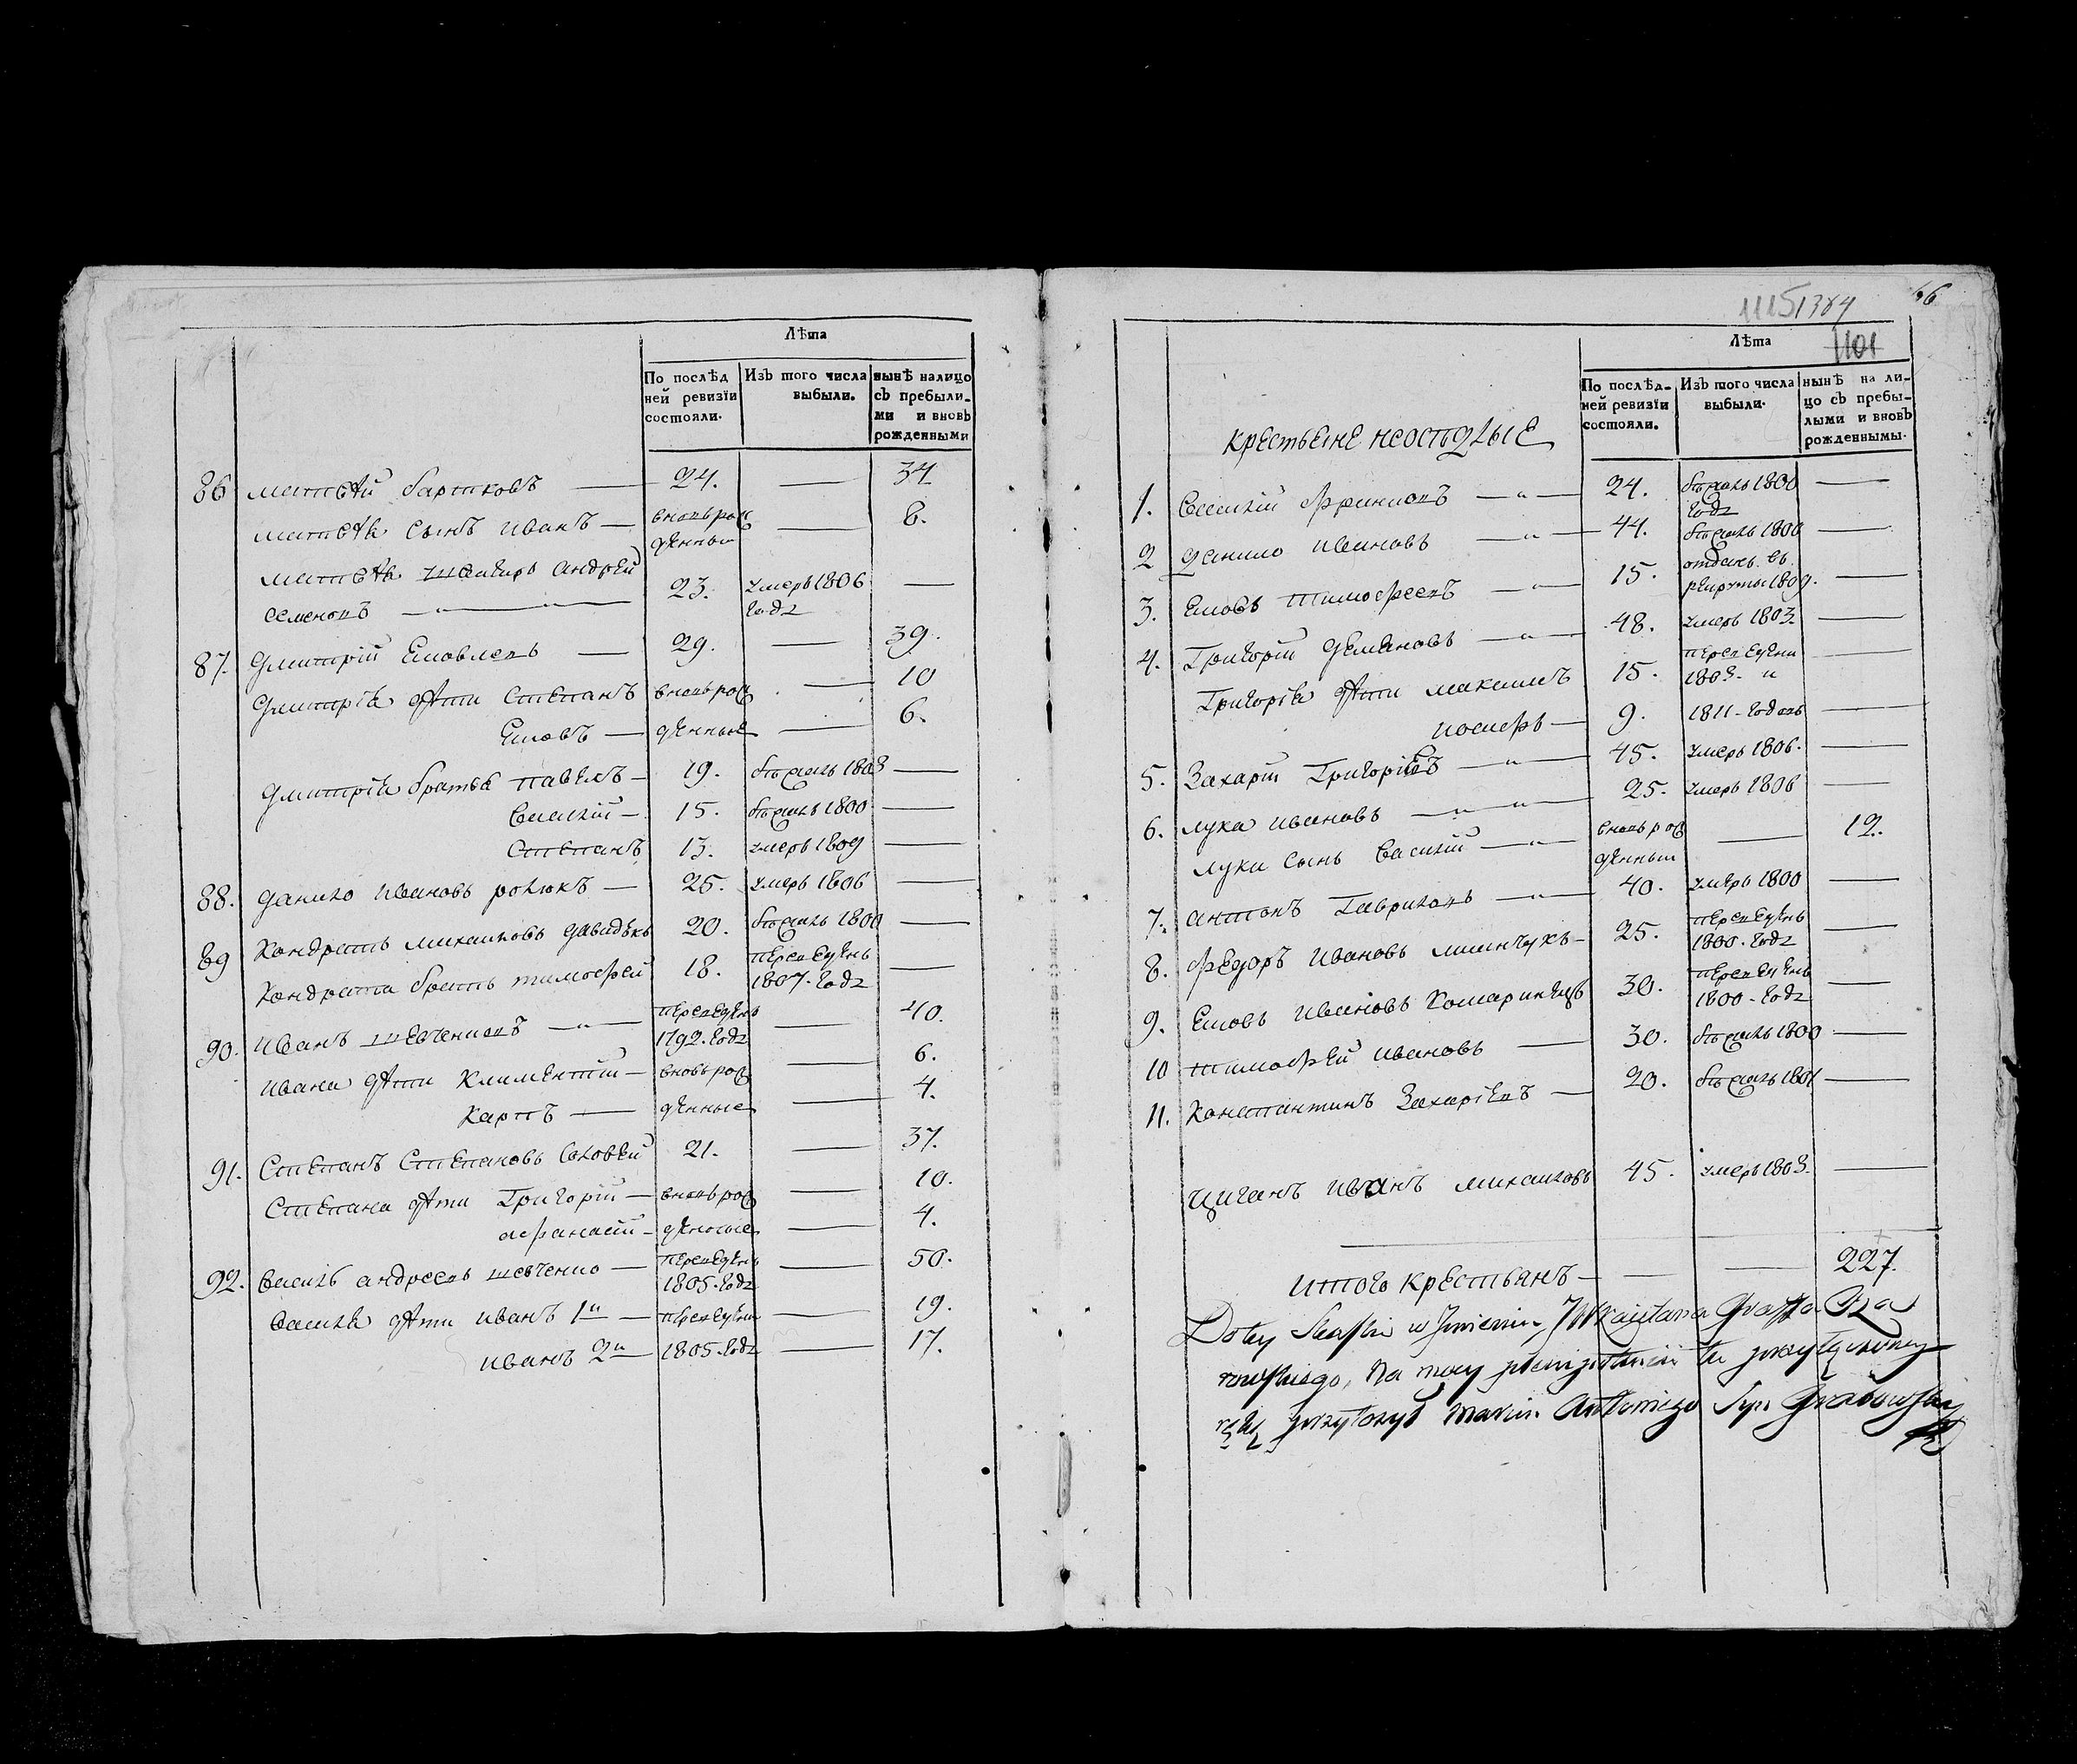 Лѣта
По послѣд
ней ревизїи
состояли.
Изъ того числа
выбыли.
нынѣ налицо
съ пребыли-
ми и вновь
рожденными
86 матвѣй бартковъ — 24. — 34.
матвѣя сынъ иванъ — вновьрож
денный — 8.
матвѣя андрей
семеновъ — 23. умеръ 1806 —
года
87. дмитрій яковлевъ — 29. — 39.
дмитрія дѣти степанъ вновьрож — 10
яковъ — денные — 6.
дмитрія братья павелъ — 19. бѣжалъ 1803 —
василій — 15. бѣжалъ 1800 —
степанъ 13. умеръ 1809 —
88. данило ивановъ — 25. умеръ 1806 —
89 кондратъ михайловъ 20. бѣжалъ 1800 —
кондрата братъ тимофей 18. переведенъ
1807. года —
90. иванъ — переведенъ
1792. года — 40.
ивана дѣти климентій — вновьрож — 6.
карпъ — денные — 4.
91. степанъ степановъ соловей 21. — 37.
степана дѣти григорій — вновьрож — 10.
афанасій — денные — 4.
92. василь андреевъ шевченко — переведенъ
1805. года — 50.
василя дѣти иванъ 1й — переведены — 19.
иванъ 2й — 1805. года — 17.
66
1101
Лѣта
По послѣд-
ней ревизїи
состояли.
Изъ того числа
выбыли.
нынѣ на ли-
цо съ пребы-
лыми и вновь
рожденнымы.
крестьяне неоседлые
1. василій — 24. бѣжалъ 1800 —
года
2 данило ивановъ — 44. бѣжалъ 1800 —
3. яковъ тимофеевъ — 15. отданъ въ
рекруты 1809. —
4. григорій демяновъ — 48. умеръ 1803. —
григорія дѣти максимъ 15. переведены
1803. и —
иосифъ — 9. 1811 годовъ —
5. захарій григоріевъ — 45. умеръ 1806. —
6. лука ивановъ — 25. умеръ 1806 —
луки сынъ василій — вновьрож
денный — 12.
7. антонъ гавриловъ — 40. умеръ 1800 —
8. федоръ ивановъ — 25. переведенъ
1800. года —
9. яковъ ивановъ 30. переведенъ
1800 года —
10 тимофей ивановъ — 30. бѣжалъ 1800 —
11. константинъ захаріевъ — 20. бѣжалъ 1801 —
циганъ иванъ михайловъ 45. умеръ 1803. —
итого крестьянъ — 227.
Do tey Skaski w Imieniu
na mocy plenipotencii tu przytączoney
rękę przyłożył Marcin Antoniego Syn Grabowski